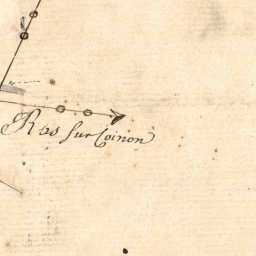 Ros sur Coinon